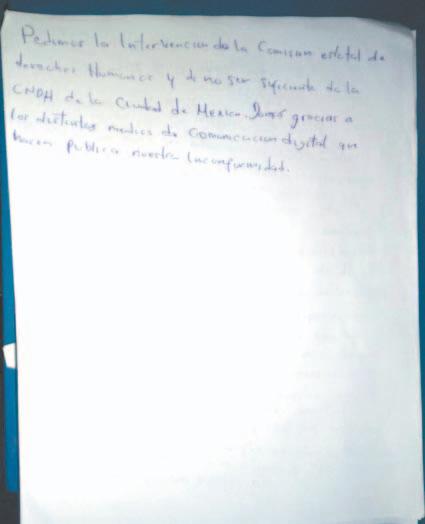 Pedimos la Intervencion de la Comision estatal de
derechos Humanos y de no ser suficiente de la
CNDH de la Ciudad de Mexico. Damos gracias a
los distintos medios de Comunicacion digital que
hacen publica nuestra Inconformidad.